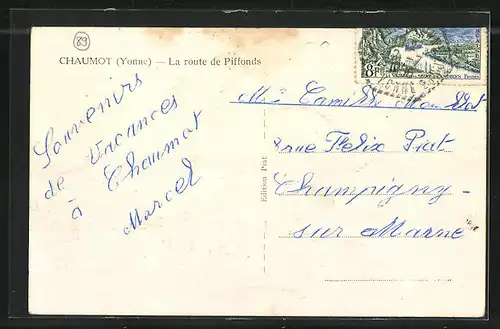 89
CHAUMOT (Yonne) — La route de Piffonds
8F
Souvenirs
de Vacances
à Chaumot
Marcel
Edition Piat
rue Felix Piat
Champigny-
sur Marne